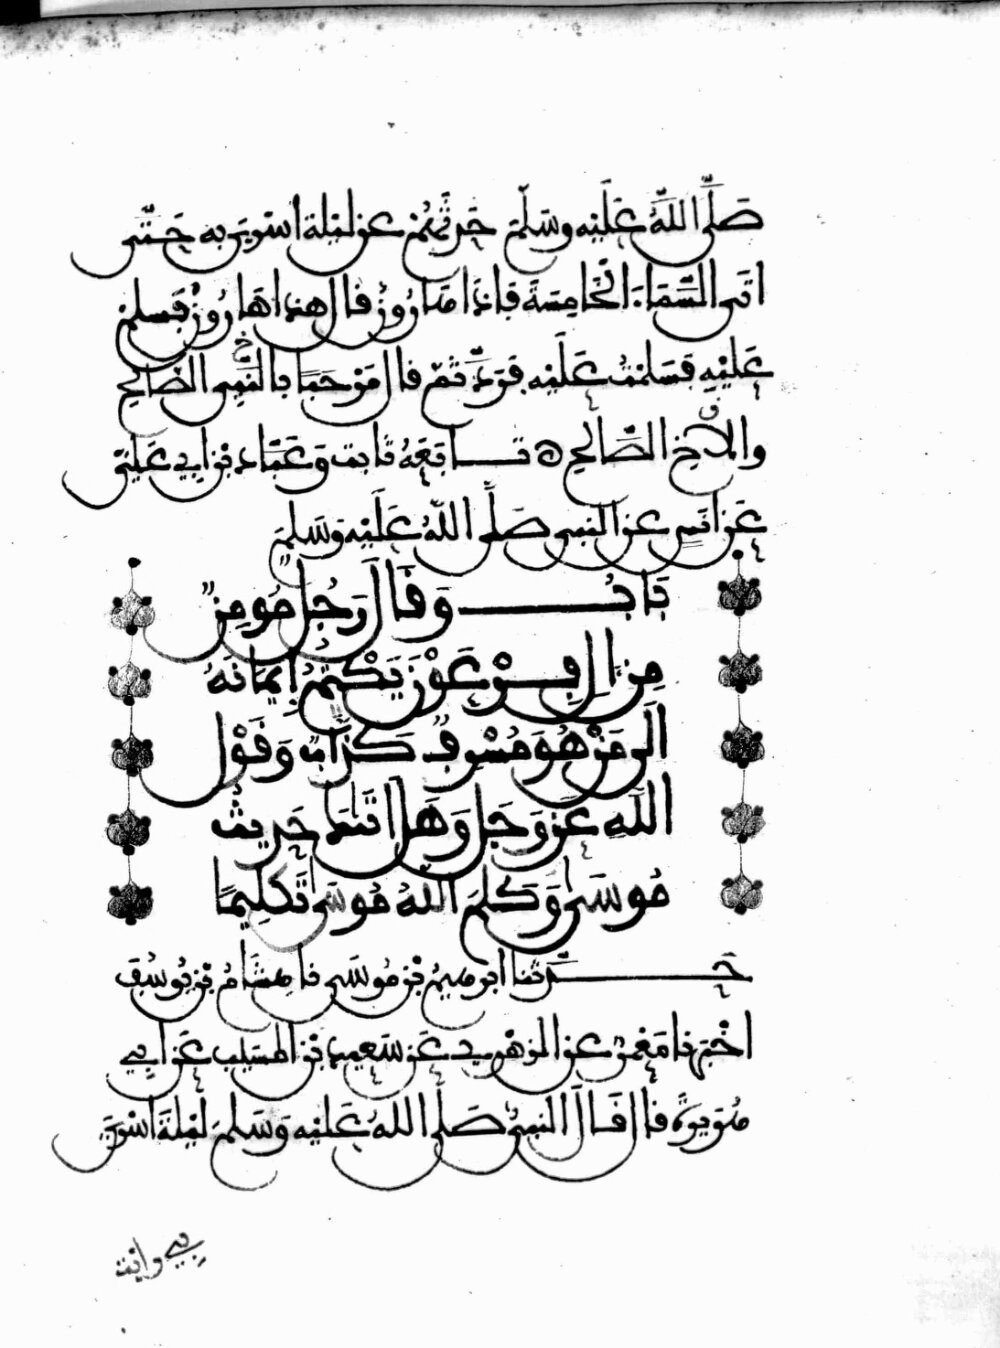 صَلَّى اللَّهُ عَلَيْهِ وَسَلَّمَ حَدَّثَهُمْ عن لَيْلَة اسْرِيَ به حَتَّى
اتَى السَّمَاءَ الْخَامِسَةَ فإذا هَارُونُ قال هذا هَارُونُ فَسلِّمْ
عَلَيْهِ فَسَلَّمْتُ عَلَيْهِ فَرَدَّ ثُمَّ قال مَرْحَبًا بالنَّبِي الصَّالح
والأَخِ الصَّالح ه تابَعَهُ ثابت وَعَبَّاد بْنُ ابِي عَلِيّ
عَن انَسٍ عن النبي صَلَّى اللَّهُ عَلَيْهِ وَسَلَّمَ
بَابُ وَقَالَ رَجُلٌ مُومِنٌ
مِنَ الِ فِرْعَوْنَ يَكْتُمُ إِيمَانَهُ
الَى مَنْ هُوَ مُسْرِفٌ كَذَّابٌ وَقَوْلِ
اللَّهِ عَزَّ وَجَلَّ وَهَلْ اتَىكَ حَدِيثُ
مُوسَى وَكَلَّمَ اللَّهُ مُوسَى تَكْلِيمًا
حَدَّثنا ابرهيمُ بْنُ مُوسَى نا هِشَامُ بْنُ يُوسُفَ
اخْبَرَنا مَعْمَرٌ عن الزُّهْرِي عَن سَعِيد بْنِ الْمُسَيِّب عَن ابِي
هُرَيْرَةَ قال قَالَ النبيُّ صَلَّى اللَّهُ عَلَيْهِ وَسَلَّمَ لَيْلَةَ اسْرِيَ
بِي رايت